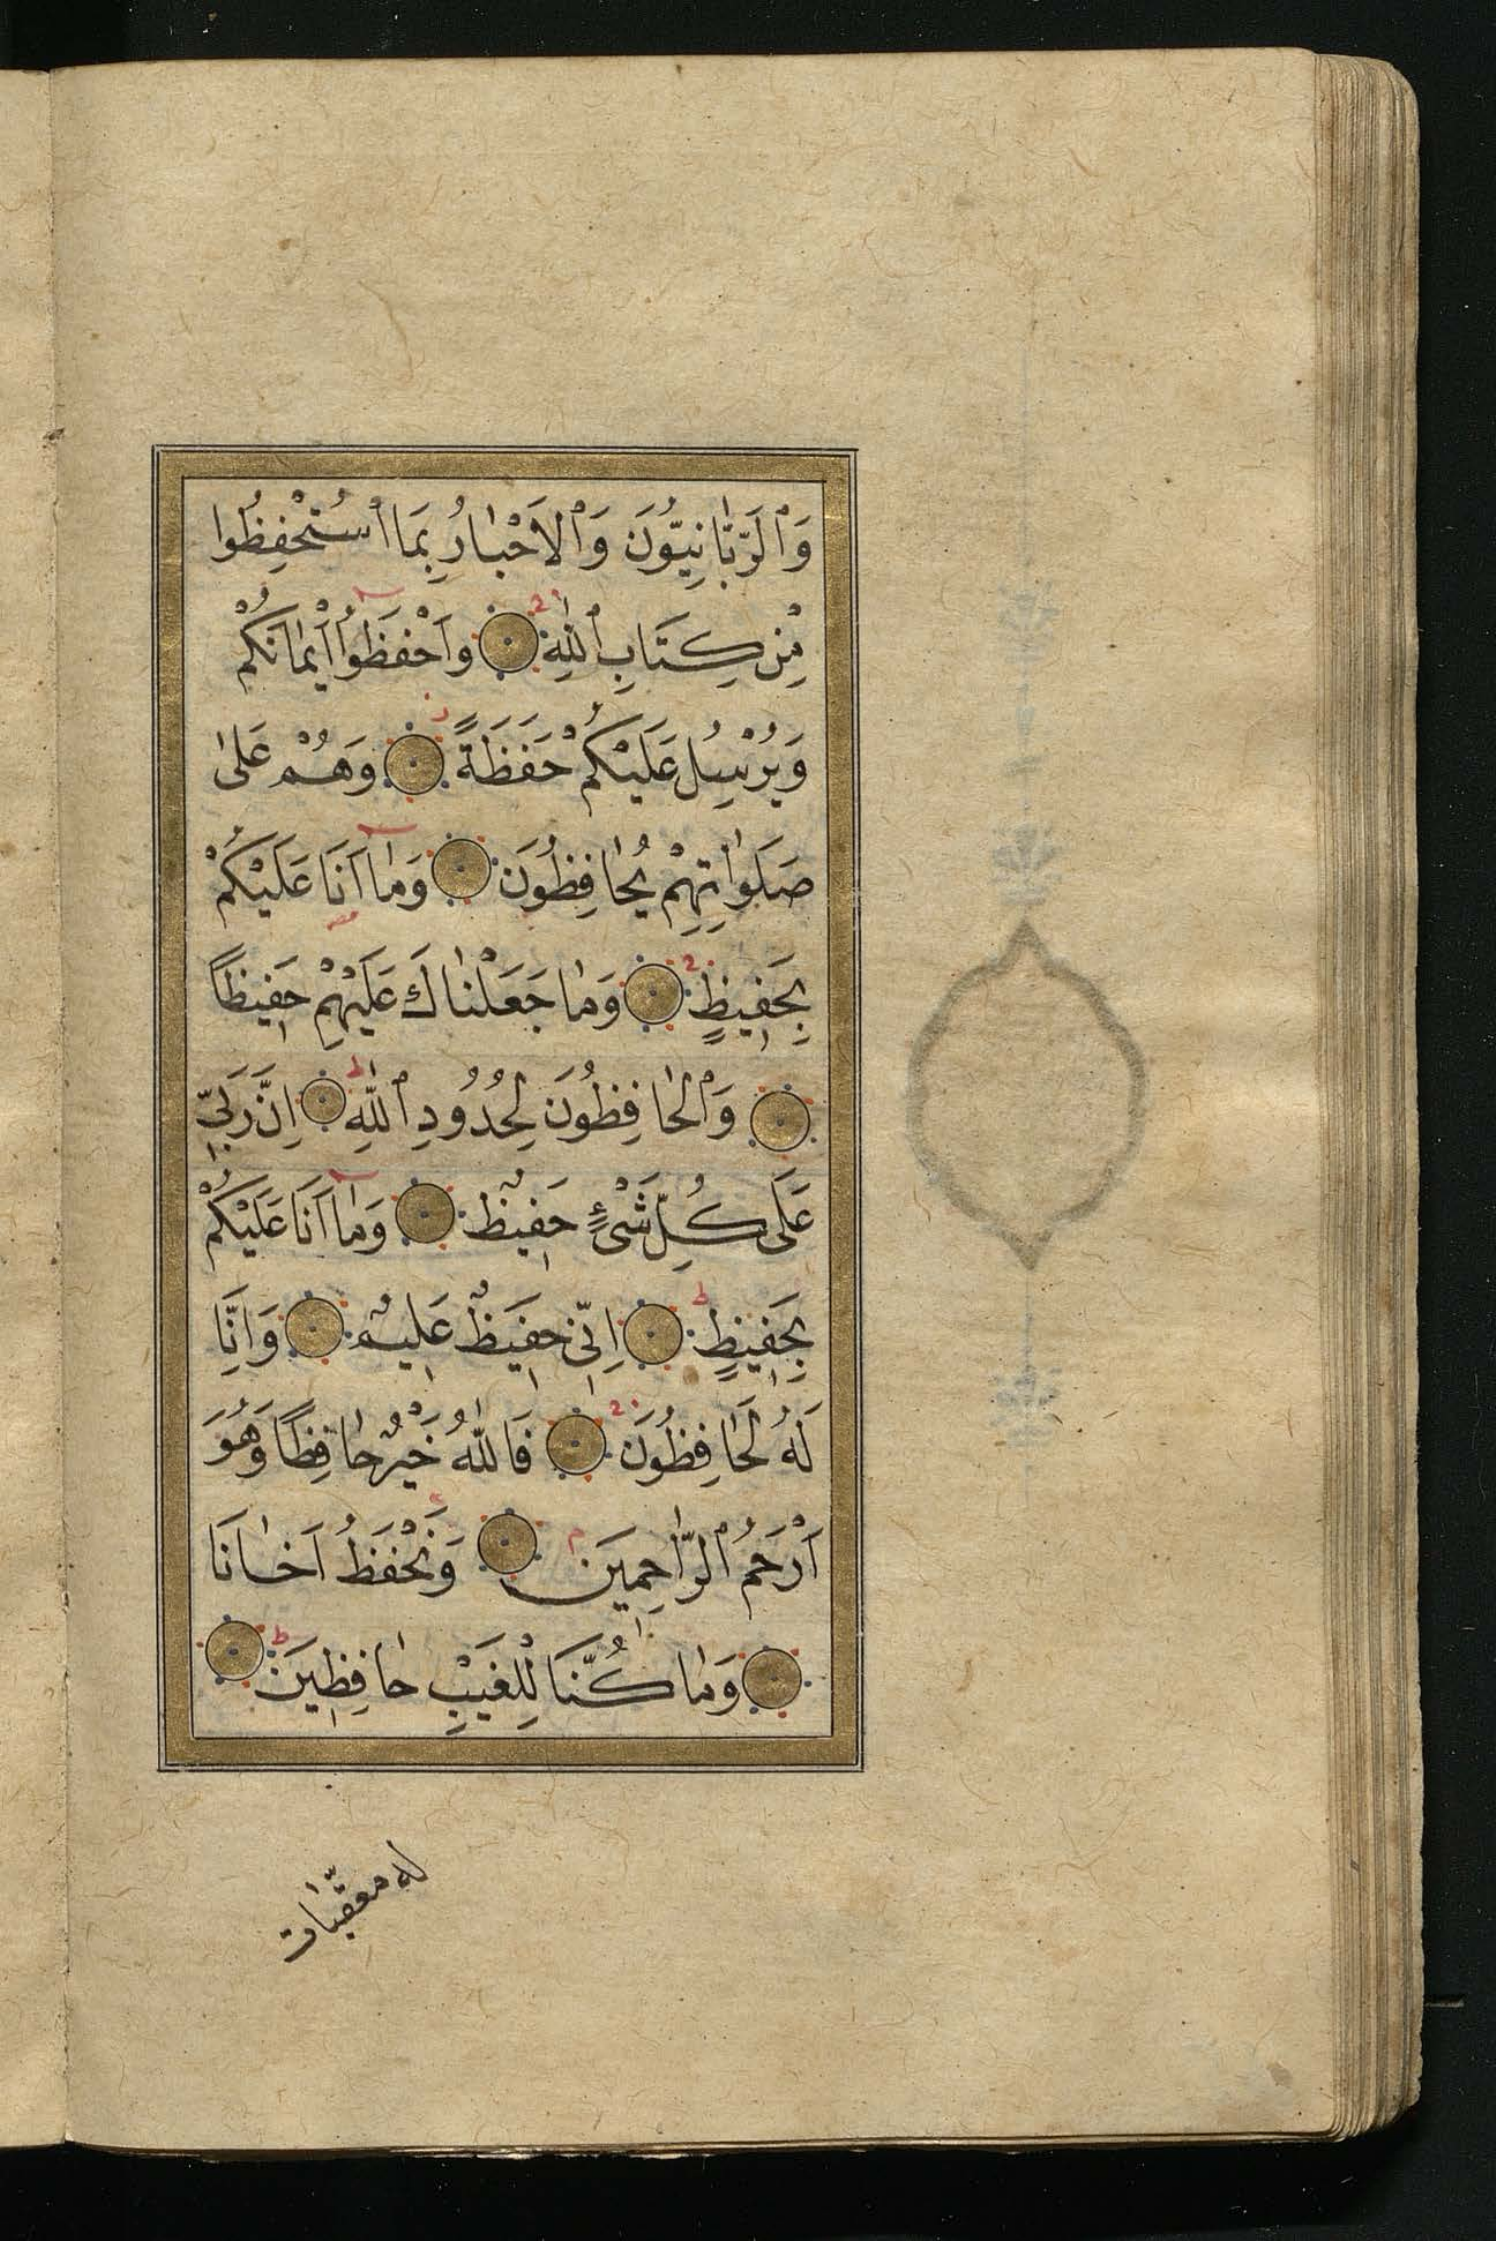 وَٱلرَّبَّانِيُّونَ وَٱلْاَحْبَارُ بِمَا ٱسْتُحْفِظُوا
مِنْ كِتَابِ ٱللّٰهِ وَاَحْفَظُوا اَيْمَانَكُمْ
وَيُرْسِلُ عَلَيْكُمْ حَفَظَةً وَهُمْ عَلٰى
صَلَوَاتِهِمْ يُحَافِظُونَ وَمَا اَنَا عَلَيْكُمْ
بِحَفِيظٍ وَمَا جَعَلْنَاكَ عَلَيْهِمْ حَفِيظًا
وَٱلْحَافِظُونَ لِحُدُودِ ٱللّٰهِ اِنَّ رَبِّي
عَلَى كُلِّ شَيْءٍ حَفِيظٌ وَمَا اَنَا عَلَيْكُمْ
بِحَفِيظٍ اِنِّي حَفِيظٌ عَلِيمٌ وَاِنَّا
لَهُ لَحَافِظُونَ فَاللّٰهُ خَيْرٌ حَافِظًا وَهُوَ
اَرْحَمُ ٱلرَّاحِمِينَ وَنَحْفَظُ اَخَانَا
وَمَا كُنَّا لِلْغَيْبِ حَافِظِينَ
له معقّبات